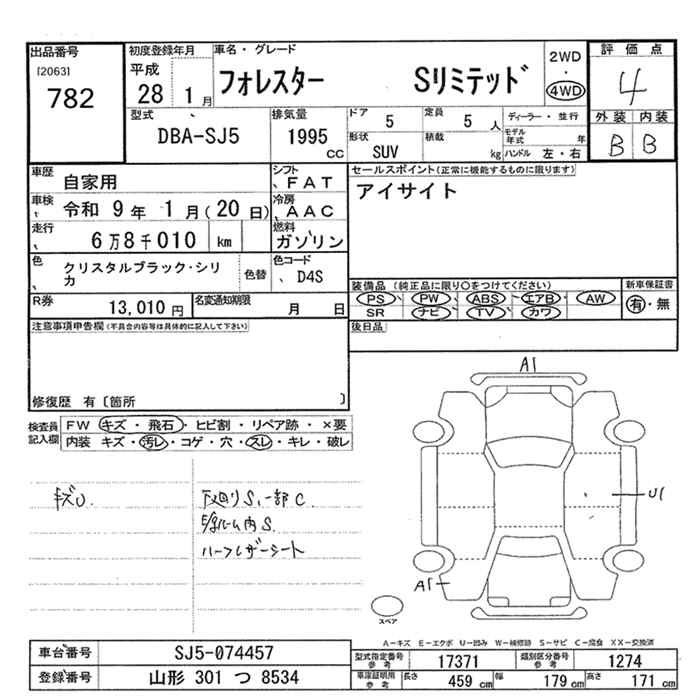 出品番号
[2063]
782
初度登録年月
平成
28 1月
車名・グレード
フォレスター Sリミテッド
2WD
・
4WD
評価点
4
外装 内装
B B
型式
DBA-SJ5
排気量
1995
CC
ドア
5
定員
5 人
形状
SUV
積載
kg
ディーラー・並行
モデル年式 年
ハンドル 左・右
車歴
自家用
シフト
FAT
車検
令和 9年 1月(20日)
冷房
AAC
走行
6万8千010 km
燃料
ガソリン
色
クリスタルブラック・シリカ
色替
色コード
D4S
R券
13,010円
名変通知期限
月 日
セールスポイント(正常に機能するものに限ります)
アイサイト
装備品 (純正品に限り○をつけてください)
PS PW ABS エアB AW
SR ナビ TV カワ
新車保証書
有・無
後日品
注意事項申告欄(不具合内容等は具体的に記入して下さい)
修復歴 有〔箇所 〕
検査員記入欄
FW キズ・飛石・ヒビ割・リペア跡・×要
内装 キズ・汚レ・コゲ・穴・スレ・キレ・破レ
キズU
下廻りS、一部C
S.
ハーフレザーシート
A1
U1
A1
スペア
A-キズ E-エクボ U-凹み W-補修跡 S-サビ C-腐食 XX-交換済
車台番号
SJ5-074457
登録番号
山形 301 つ 8534
型式指定番号
参考
17371
類別区分番号
参考
1274
車庫証明用
参考
長さ 459 cm 幅 179 cm 高さ 171 cm